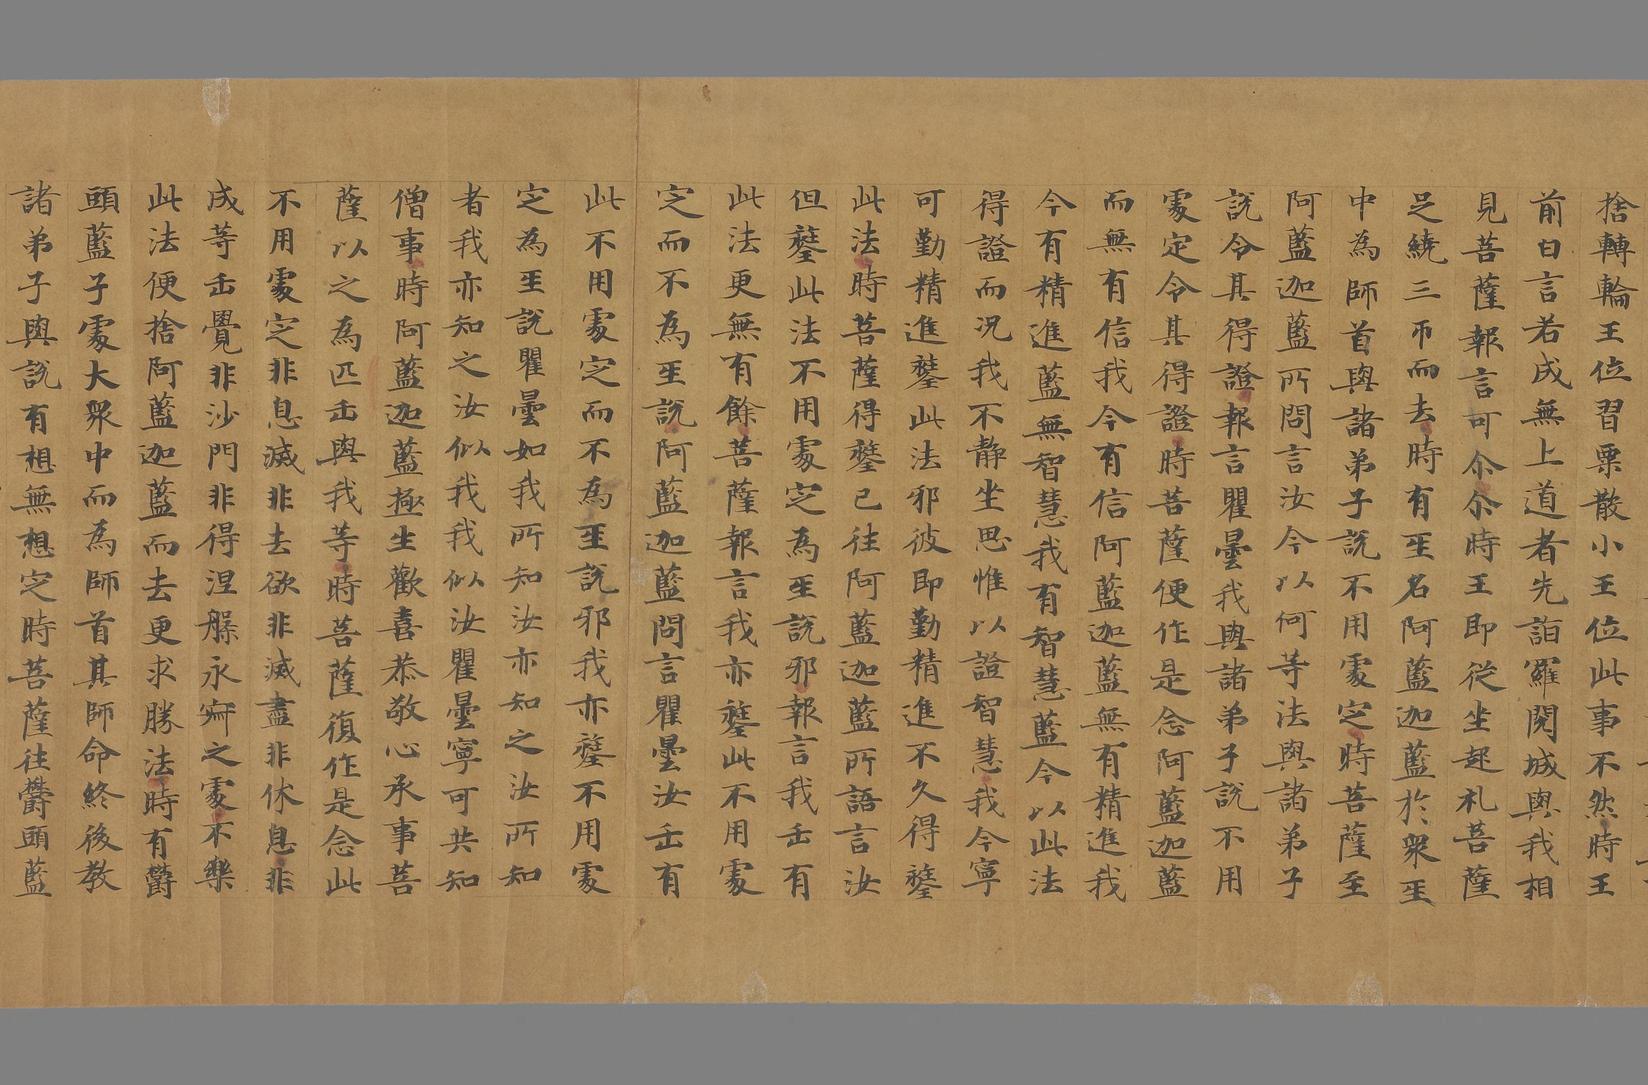 捨轉輪王位習粟散小王位此事不然時王
前白言若成無上道者先詣羅閱城與我相
見菩薩報言可尒尒時王即從坐起礼菩薩
足繞三帀而去時有𤯔名阿藍迦藍於衆𤯔
中為師首與諸弟子說不用處定時菩薩至
阿藍迦藍所問言汝今以何等法與諸弟子
說令其得證報言瞿曇我與諸弟子說不用
處定令其得證時菩薩便作是念阿藍迦藍
而無有信我今有信阿藍迦藍無有精進我
今有精進藍無智慧我有智慧藍今以此法
得證而況我不靜坐思惟以證智慧我今寧
可勤精進𨭻此法邪彼即勤精進不久得𨭻
此法時菩薩得𨭻已往阿藍迦藍所語言汝
但𨭻此法不用處定為𤯔說邪報言我𠙺有
此法更無有餘菩薩報言我亦𨭻此不用處
定而不為𤯔說阿藍迦藍問言瞿曇汝𠙺有
此不用處定而不為𤯔說邪我亦𨭻不用處
定為𤯔說瞿曇如我所知汝亦知之汝所知
者我亦知之汝似我我似汝瞿曇寧可共知
僧事時阿藍迦藍極生歡喜恭敬心承事菩
薩以之為匹𠙺與我等時菩薩復作是念此
不用處定非息滅非去欲非滅盡非休息非
成等𠙺覺非沙門非得涅槃永寂之處不樂
此法便捨阿藍迦藍而去更求勝法時有欝
頭藍子處大衆中而為師首其師命終後教
諸弟子與說有想無想定時菩薩往欝頭藍